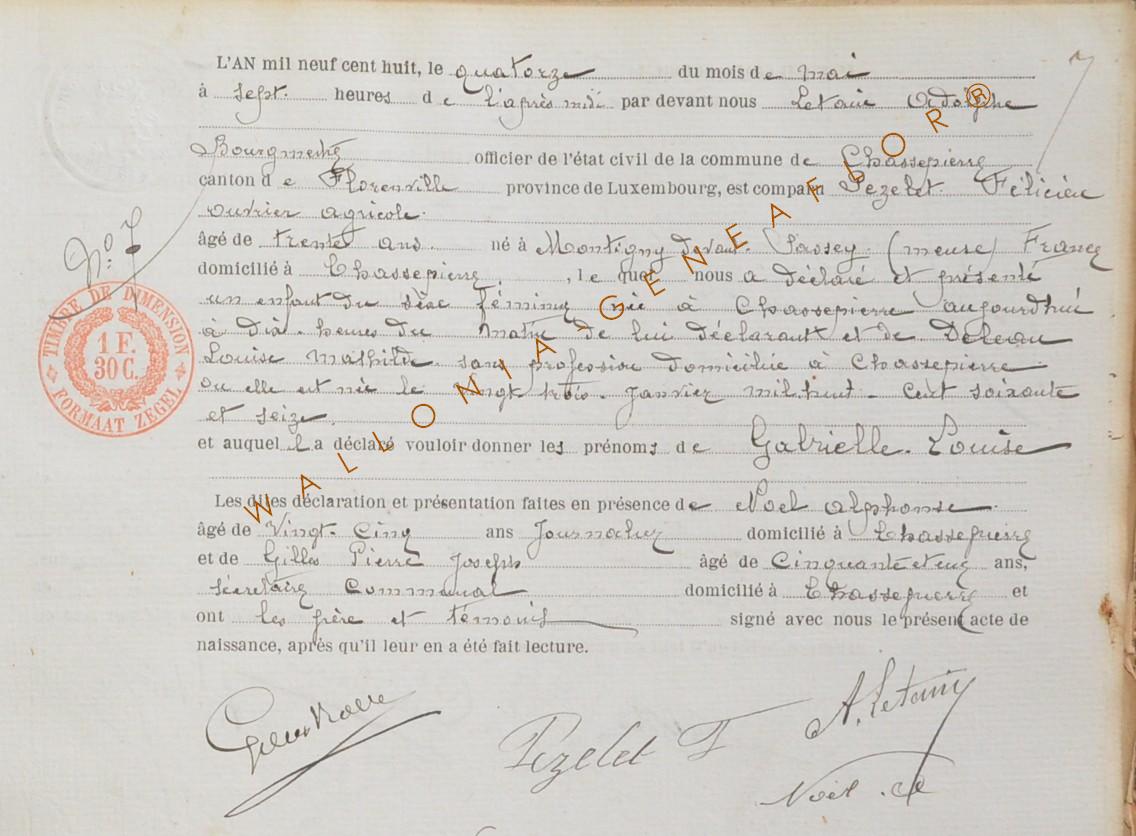 L'AN mil neuf cent huit, le quatorze du mois de mai
à sept heures de l'après midi par devant nous Letaie Adolphe
Bourgmestre officier de l'état civil de la commune de Chassepierre
canton de Florenville province de Luxembourg, est comparu Pezelet Félicien
ouvrier agricole
âgé de trente ans né à Montigny devant Sassey (meuse) France
domicilié à Chassepierre, lequel nous a déclaré et présenté
un enfant du sexe féminin née à Chassepierre aujourdhui
à dix heures du matin de lui déclarant et de
Louise Mathilde sans profession domiciliée à Chassepierre
ou elle est née le vingt trois Janvier mil huit Cent soixante
et seize
et auquel il a déclaré vouloir donner les prénoms de Gabrielle Louise
Les dites déclaration et présentation faites en présence de Noel Alphonse
âgé de Vingt Cinq ans Journalier domicilié à Chassepierre
et de Gilles Pierre Joseph âgé de Cinquante et un ans,
Sécretaire Communal domicilié à Chassepierre et
ont les père et témoins signé avec nous le présent acte de
naissance, après qu'il leur en a été fait lecture.
No. 7
7
TIMBRE DE DIMENSION
1 F.
30 C.
FORMAAT ZEGEL
WALLONIA GENEAFLOR®
Pezelet F
Noël